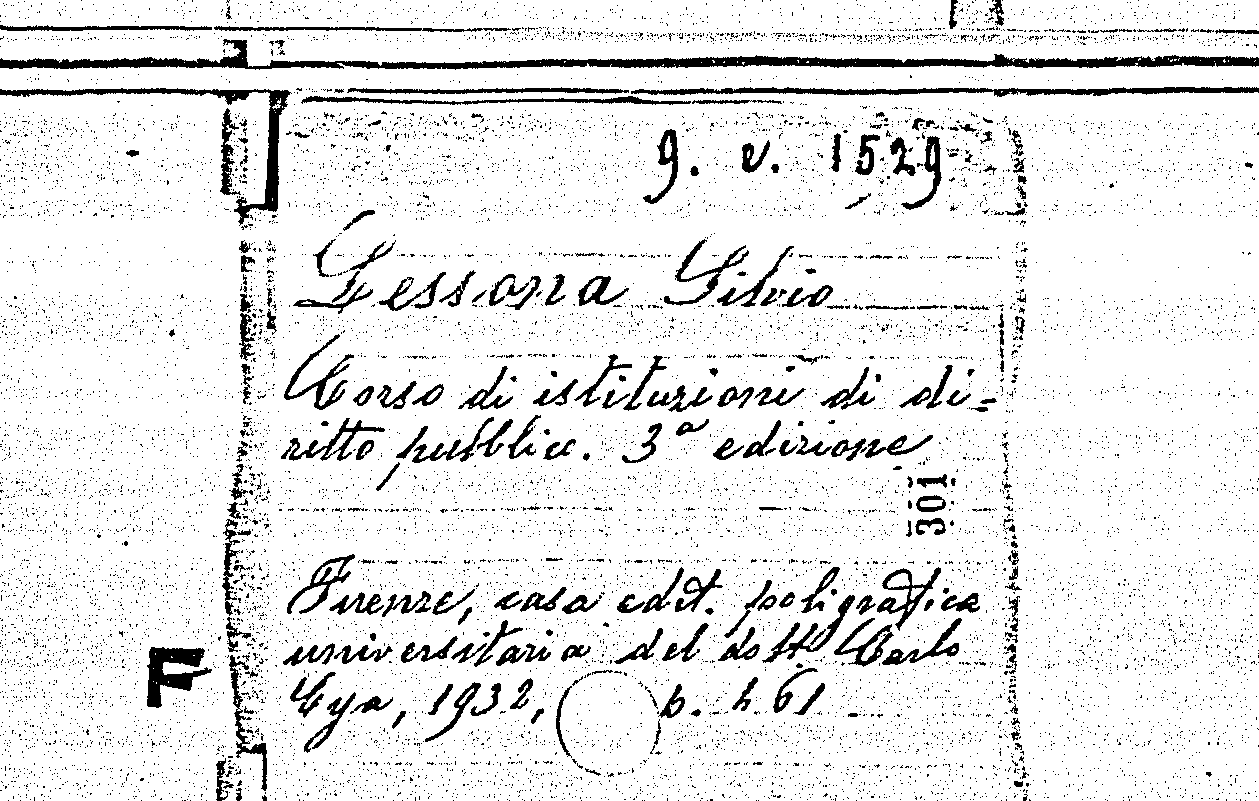 9. v. 1529
Lessona Silvio
Corso di istituzioni di di=
ritto pubblico. 3ª edizione
301
Firenze, casa edit. poligrafica
universitaria del dott. Carlo
F
Cya, 1932, p. 461